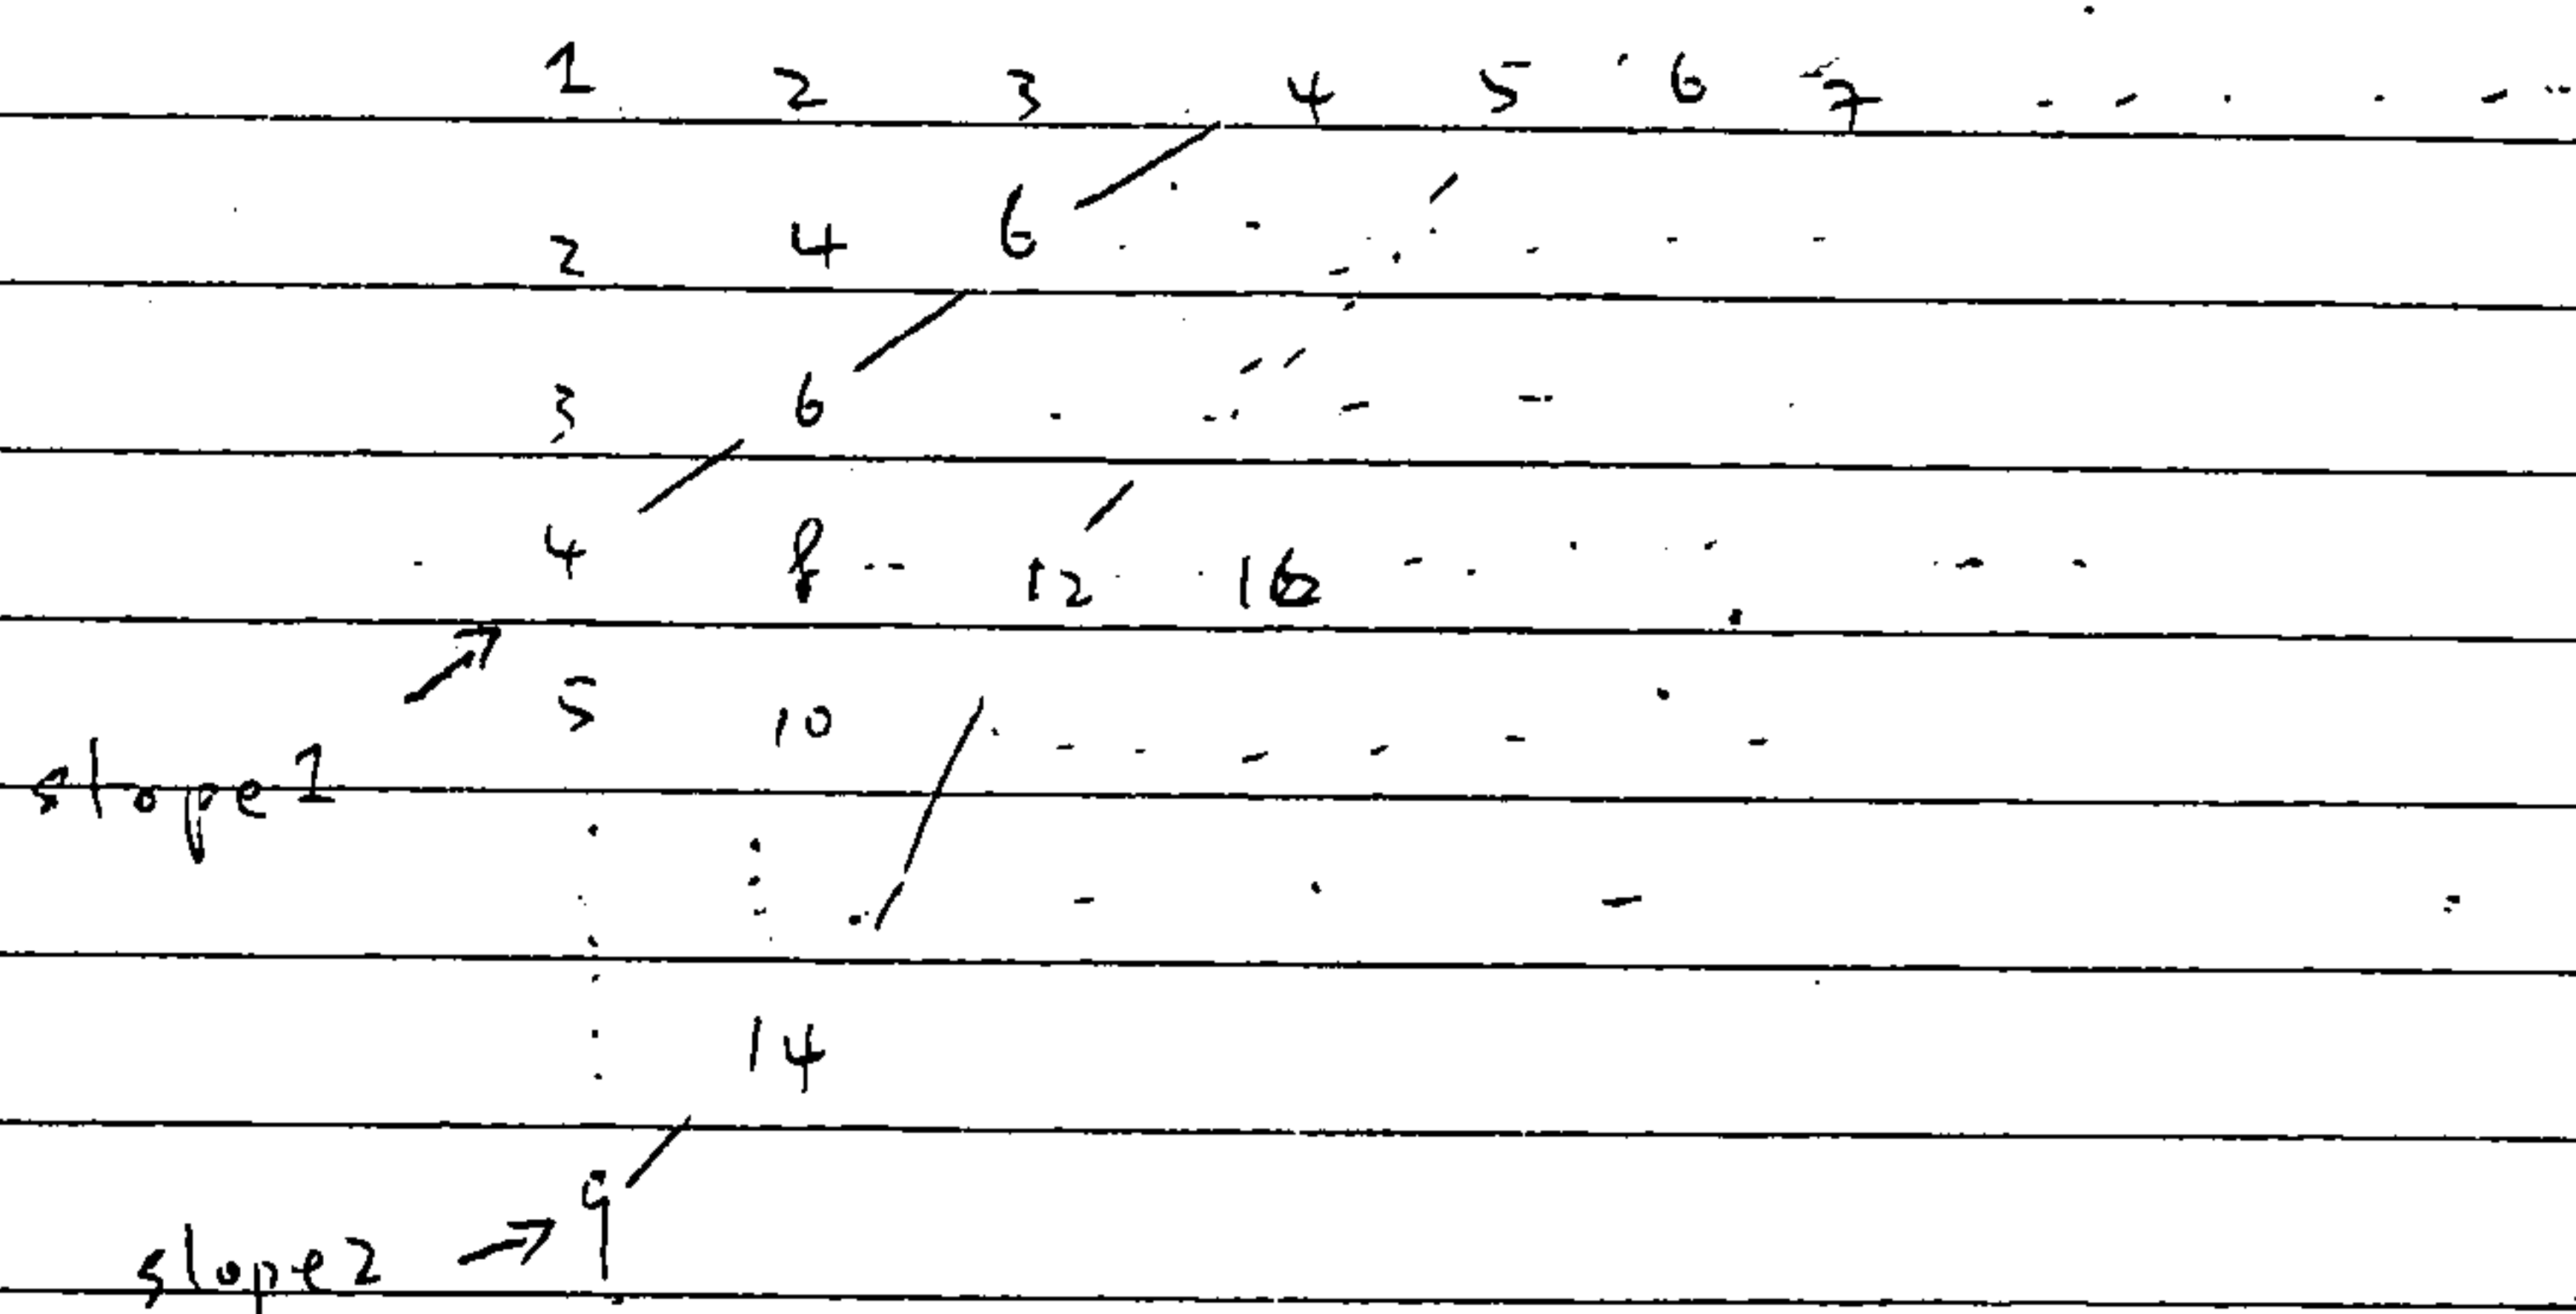 1 2 3 4 5 6 7
2 4 6
3 6
4 8 12 16
5 10
slope1
14
slope2 → 9